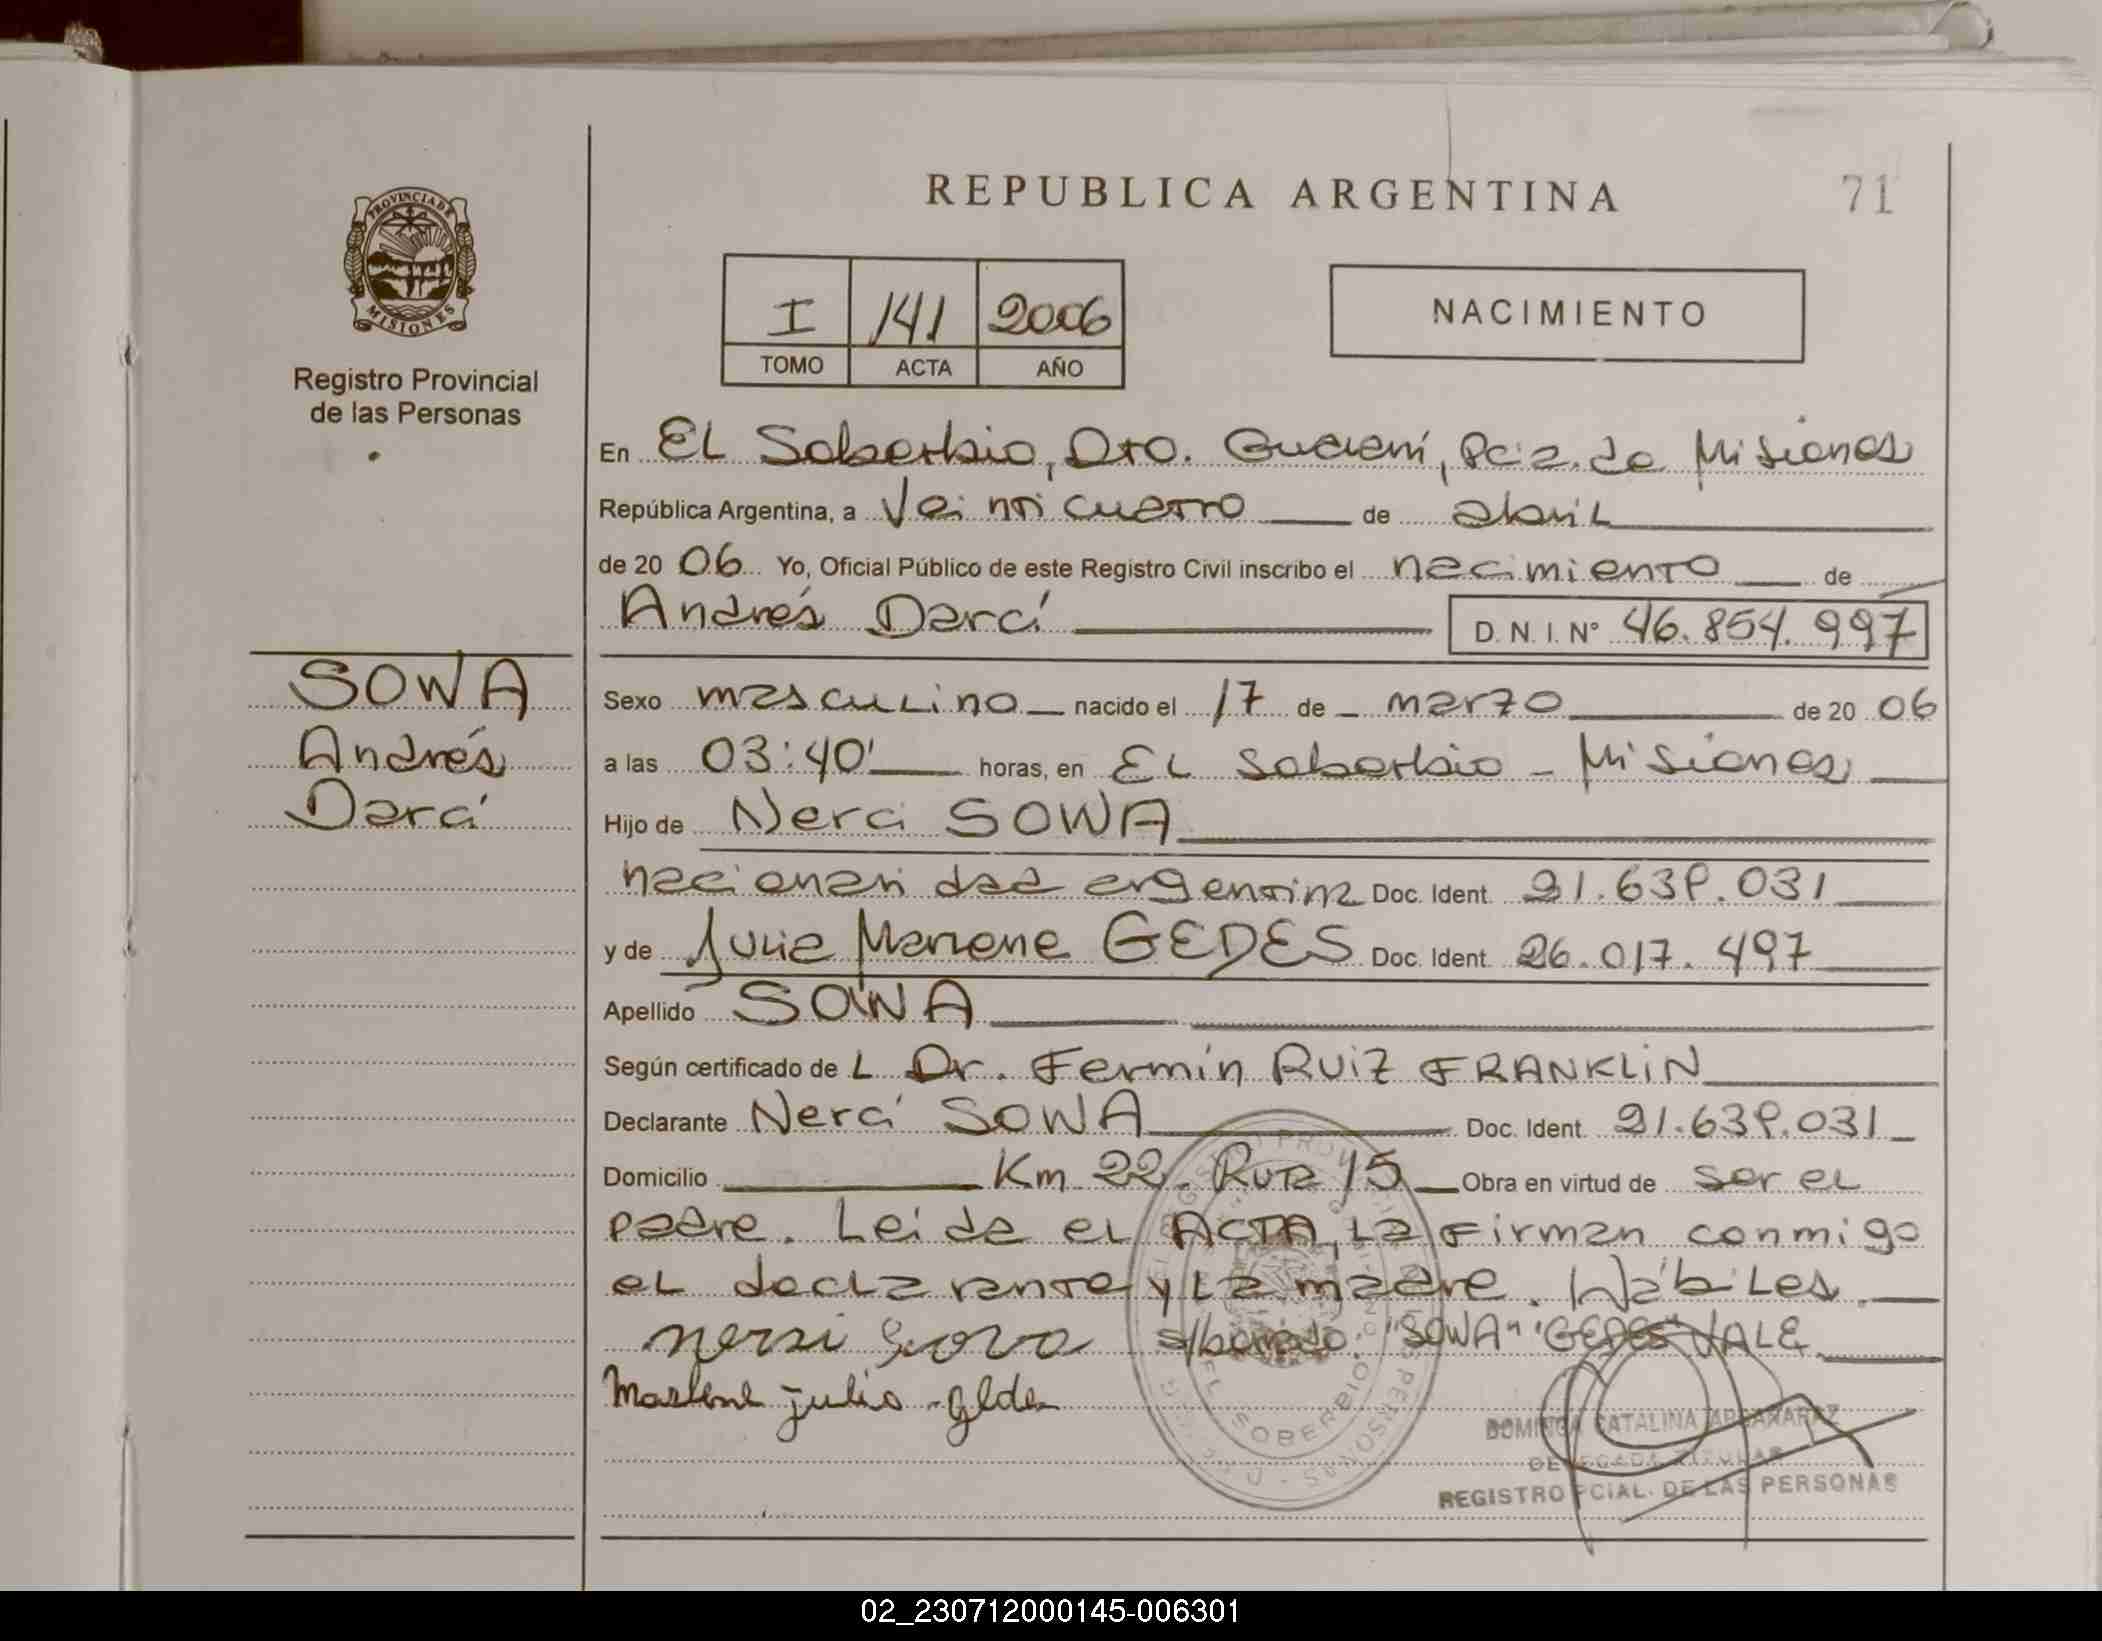 REPUBLICA ARGENTINA
71
PROVINCIA DE
MISIONES
Registro Provincial
de las Personas
I 141 2006
TOMO ACTA AÑO
NACIMIENTO
En EL Soberbio, Dto. Guaraní, Pcia. de Misiones
República Argentina, a Veinticuatro de abril
de 20 06 Yo, Oficial Público de este Registro Civil inscribo el nacimiento de
Andrés Darcí
D. N. I. Nº 46.854.997
SOWA
Andrés
Darcí
Sexo masculino nacido el 17 de marzo de 20 06
a las 03:40' horas, en EL Soberbio - Misiones
Hijo de Nerci SOWA
nacionalidad argentina Doc. Ident. 21.639.031
y de Julia Marlene GEDES Doc. Ident. 26.017.497
Apellido SOWA
Según certificado de L Dr. Fermín RUIZ FRANKLIN
Declarante Nerci SOWA Doc. Ident. 21.639.031
Domicilio Km 22. Ruta 15 Obra en virtud de ser el
padre. Leida el ACTA, la firman conmigo
el declarante y la madre. Hábiles.
nerci sova s/borrado: "SOWA" "GEDES" VALE
Marlene julia gede
EL SOBERBIO
DOMINGA CATALINA ARGAÑARAZ
DELEGADA TITULAR
REGISTRO PCIAL. DE LAS PERSONAS
02_230712000145-006301